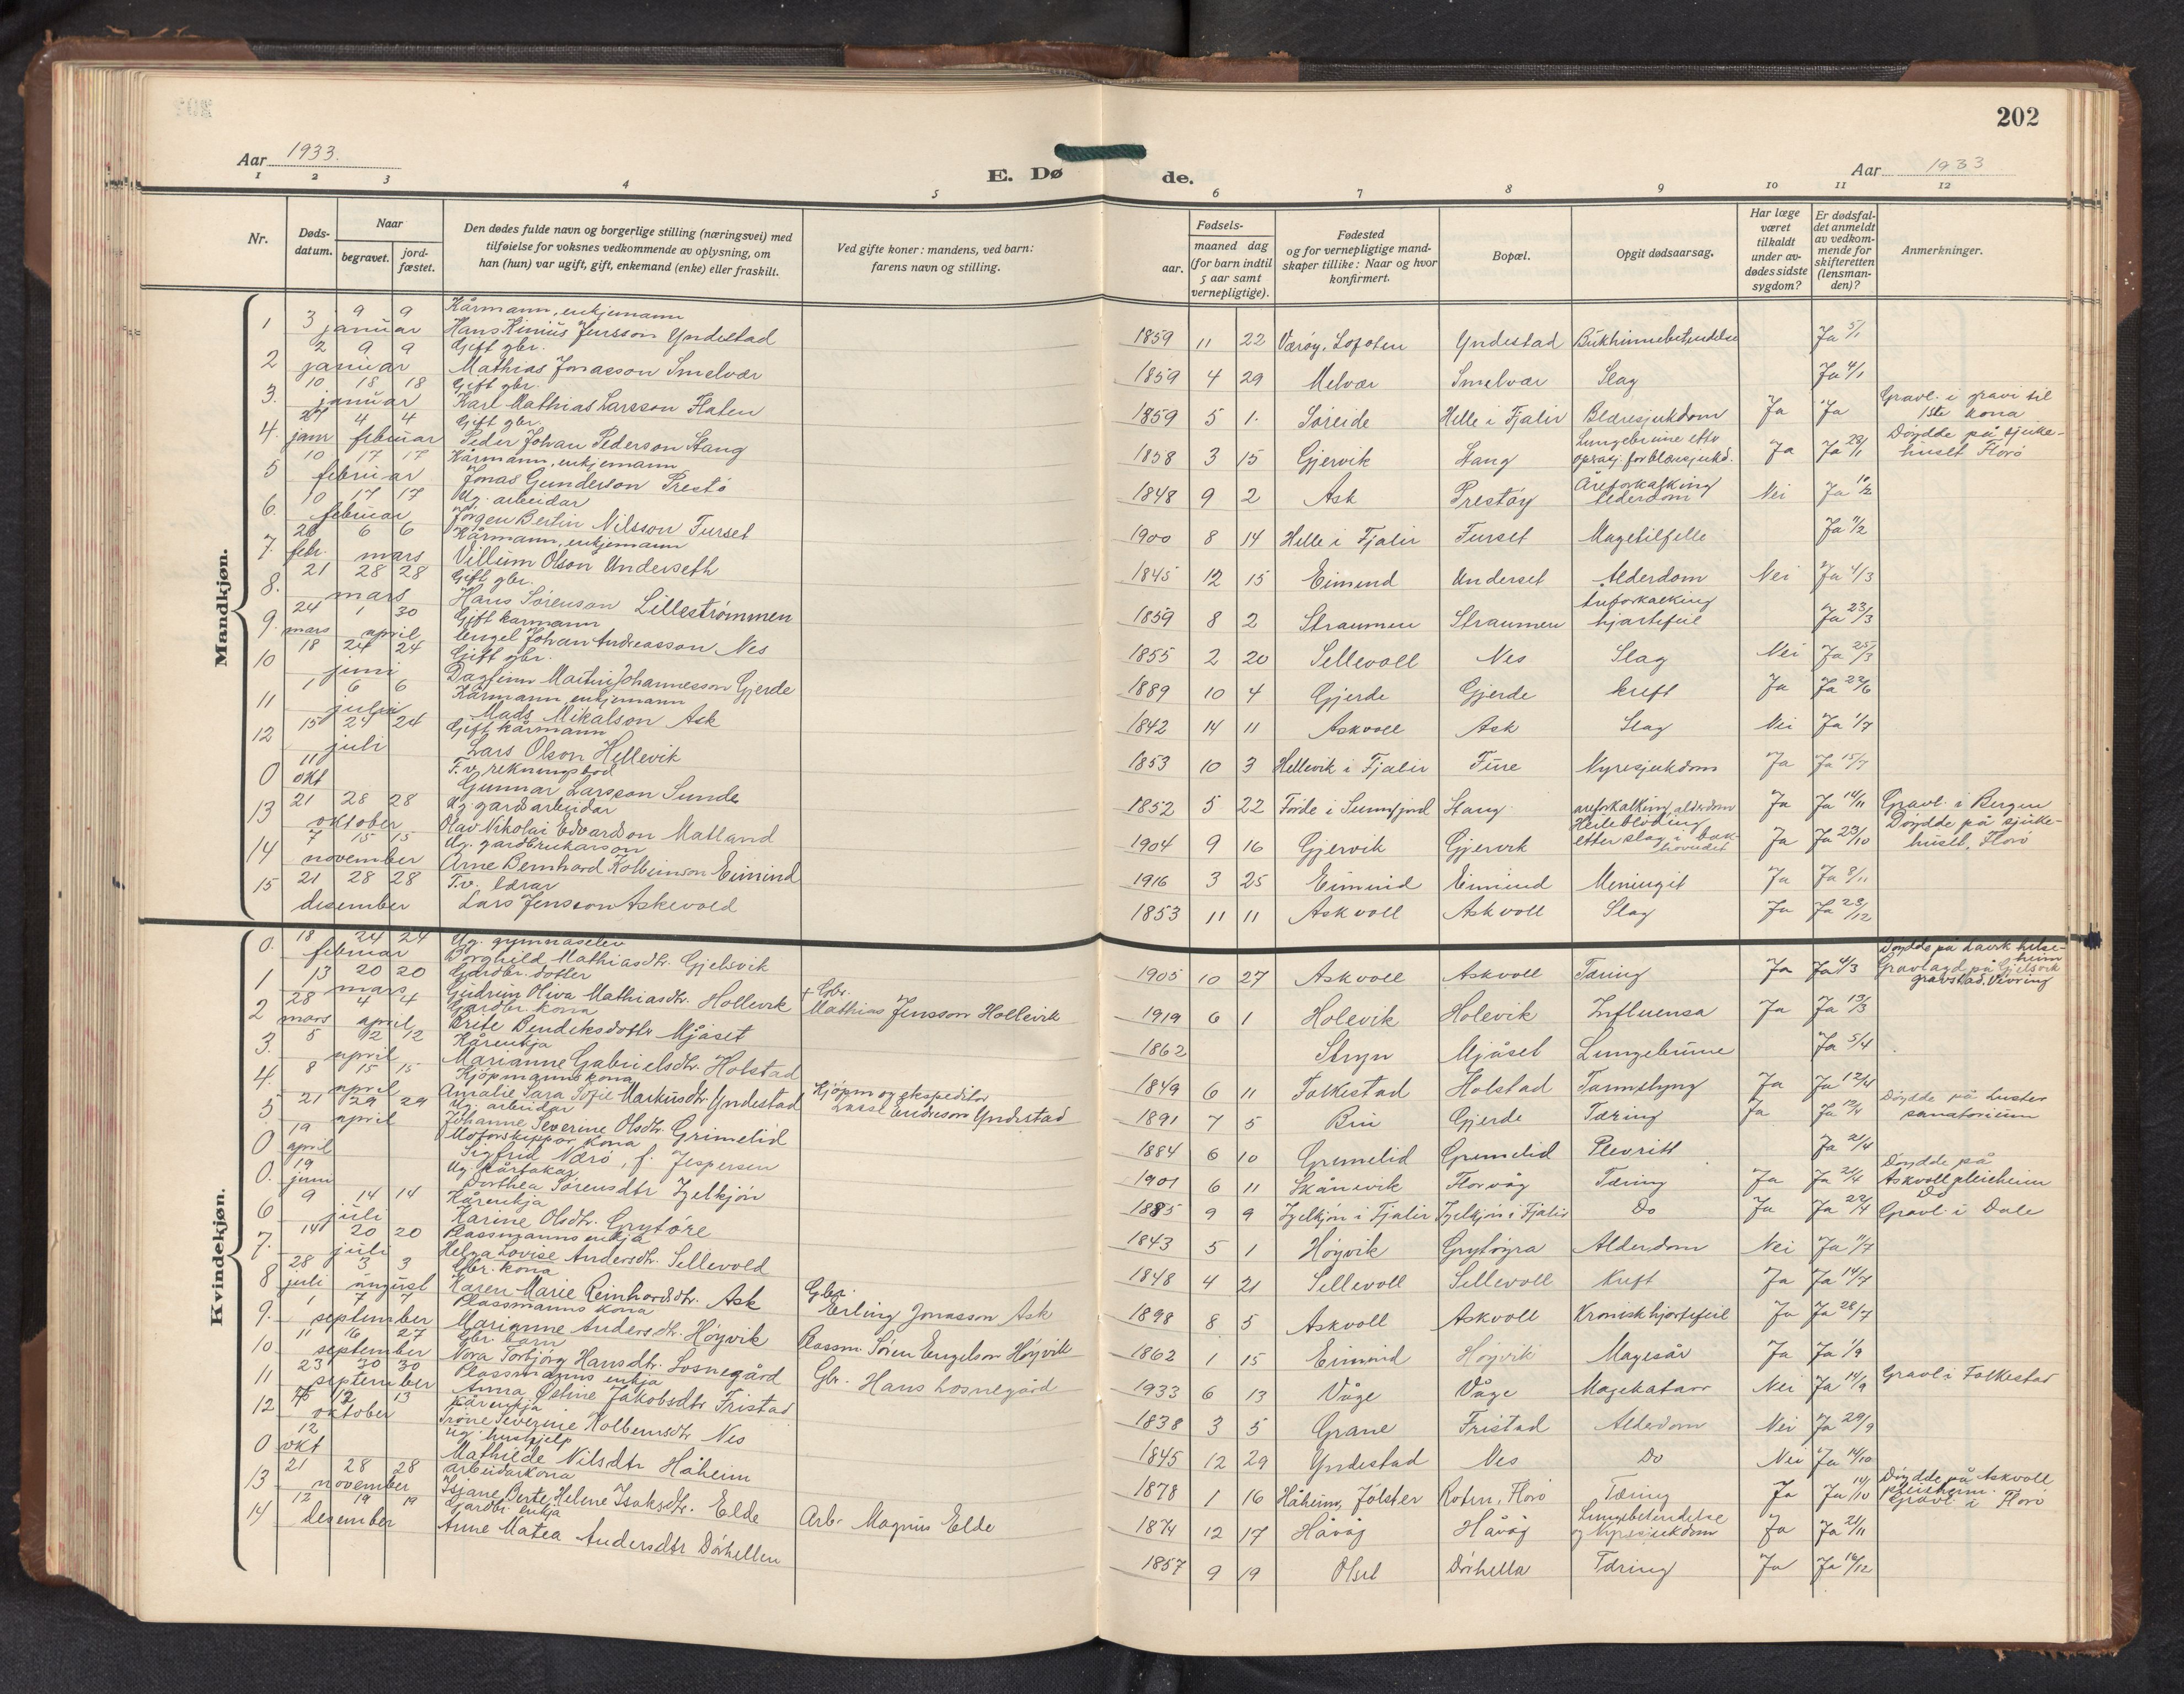 202
Aar 1933.
E. Døde.
Aar 1933
1 2 3 4 5 6 7 8 9 10 11 12
Nr.
Døds-datum.
Naar
begravet.
jord-fæstet.
Den dødes fulde navn og borgerlige stilling (næringsvei) med
tilføielse for voksnes vedkommende av oplysning, om
han (hun) var ugift, gift, enkemand (enke) eller fraskilt.
Ved gifte koner: mandens, ved barn:
farens navn og stilling.
aar.
Fødsels-
maaned dag
(for barn indtil
5 aar samt
vernepligtige).
Fødested
og for vernepligtige mand-
skaper tillike: Naar og hvor
konfirmert.
Bopæl.
Opgit dødsaarsag.
Har læge
været
tilkaldt
under av-
dødes sidste
sygdom?
Er dødsfal-
det anmeldt
av vedkom-
mende for
skifteretten
(lensman-
den)?
Anmerkninger.
Mandkjøn.
1 3 9 9 januar Kårmann, enkjemann Hans Kinius Jensson Yndestad 1859 11 22 Værøy, Lofoten Yndestad Bukhinnebetendelse Ja 5/1
2 2 9 9 januar Gift gbr. Mathias Jonasson Smelvær 1859 4 29 Melvær Smelvær Slag Ja 4/1
3. 10 18 18 januar Gift gbr. Karl Mathias Larsson Flaten 1859 5 1. Søreide Helle i Fjalir Blæresjukdom Ja Ja Gravl. i gravi til 1ste kona
4. 27 4 4 janr februar Gift gbr. Peder Johan Pederson Stang 1858 3 15 Gjervik Stang Lungebrune etter operasj. for blæresjukd. Ja Ja 28/1 Døydde på sjuke-huset Florø
5 10 17 17 februar Kårmann, enkjemann Jonas Gunderson Prestø 1848 9 2 Ask Prestøy Åreforkalking alderdom Nei Ja 10/2
6. 10 17 17 februar Ug. arbeidar Jørgen Bertin Nilsson Furset 1900 8 14 Helle i Fjalir Furset Magetilfelle Ja 11/2
7. 26 6 6 febr. mars Kårmann, enkjemann Villum Olson Underseth 1845 12 15 Eimind Underset Alderdom Nei Ja 4/3
8. 21 28 28 mars Gift gbr. Hans Sørenson Lillestrømmen 1859 8 2 Straumen Straumen Åreforkalking hjartefeil Ja 23/3
9. 24 1 30 mars april Gift kårmann Engel Johan Andreasson Nes 1855 2 20 Sellevoll Nes Slag Nei Ja 25/3
10 18 24 24 juni Gift gbr. Dagfinn Martin Johannesson Gjerde 1889 10 4 Gjerde Gjerde Kreft Ja Ja 22/6
11 1 6 6 juli Kårmann, enkjemann Mads Mikalson Ask 1842 14 11 Askvoll Ask Slag Nei Ja 1/7
12 15 24 24 juli Gift kårmann Lars Olson Hellevik 1853 10 3 Hellevik i Fjalir Fure Nyresjukdom Ja Ja 15/7
0 11 okt F.v. rekningsbod Gunnar Larsson Sunde 1852 5 22 Førde i Sunnfjord Stang åreforkalking, alderdom Ja Ja 14/11 Gravl. i Bergen
13 21 28 28 oktober Ug. gardsarbeidar Olav Nikolai Edvardson Matland 1904 9 16 Gjervik Gjervik Heilebløding etter slag i bak-hovudet Ja Ja 23/10 Døydde på sjuke-huset, Florø
14 7 15 15 november Ug. gardbrukarson Arne Bernhard Kolbeinson Eimind 1916 3 25 Eimind Eimind Meningit Ja Ja 8/11
15 21 28 28 desember F.v. lærar Lars Jensson Askevold 1853 11 11 Askvoll Askvoll Slag Ja Ja 23/12
Kvindekjøn.
0. 18 24 24 februar Ug. gymnaselev Borghild Mathiasdtr. Gjelsvik 1905 10 27 Askvoll Askvoll Tæring Ja Ja 4/3 Døydde på Lavik helse-heim Gravlagd på Gjelsvik gravstad, Vevring
1 13 20 20 mars Gardbr. dotter Gudrun Oliva Mathiasdtr. Hollevik + Gbr. Mathias Jensson Hollevik 1919 6 1 Holevik Holevik Influensa Ja Ja 13/3
2 28 4 4 mars april Gardbr. kona Brite Bendiksdotter Mjåset 1862 Stryn Mjåset Lungebrune Ja 5/4
3. 5 12 12 april Kårenkja Marianne Gabrielsdtr. Holstad 1849 6 11 Folkestad Holstad Tarmslyng Ja Ja 12/4
4. 8 15 15 april Kjøpmannskona Amalie Sara Sofie Markusdtr. Yndestad Kjøpm og ekspeditør Lasse Endreson Yndestad 1891 7 5 Bru Gjerde Tæring Ja Ja 12/4 Døydde på Luster sanatorium
5 21 29 29 april Ug. arbeidar Johanne Severine Olsdtr. Grimelid 1884 6 10 Grimelid Grimelid Plevritt Ja 21/4
0 19 april Motorskippar kona Sigfrid Nærø, f. Jespersen 1901 6 11 Skånevik Florvåg Tæring Ja Ja 21/4 Døydde på Askvoll pleieheim
0. 19 juni Ug. kårtakar Dorthea Sørensdtr Tjelkjøn 1885 9 9 Tjelkjøn i Fjalir Tjelkjøn i Fjalir Do Ja Ja 22/4 Do Gravl. i Dale
6 9 14 14 juli Kårenkja Karine Olsdtr. Grytøre 1843 5 1 Høyvik Grytøyra Alderdom Nei Ja 11/7
7. 14 20 20 juli Plassmanns enkja Helga Lovise Andersdtr. Sellevold 1848 4 21 Sellevoll Sellevoll Kreft Ja Ja 14/7
8 28 3 3 juli august Gbr. kona Karen Marie Reinhardsdtr. Ask Gbr. Erling Jonasson Ask 1898 8 5 Askvoll Askvoll Kronisk hjartefeil Ja Ja 28/7
9. 1 7 7 september Plassmanns kona Marianne Andersdtr. Høyvik Plassm. Søren Engelson Høyvik 1862 1 15 Eimind Høyvik Magesår Ja Ja 1/9
10 11 16 27 september Gbr. barn Nora Torbjørg Hansdtr. Losnegård Gbr. Hans Losnegård 1933 6 13 Våge Våge Magekatarr Nei Ja 14/9 Gravl i Folkestad
11 23 30 30 september Plassmanns enkja Anna Østine Jakobsdtr Fristad 1838 3 5 Grane Fristad Alderdom Nei Ja 29/9
12 12 13 oktober Kårenkja Severine Kolbeinsdtr Nes 1845 12 29 Yndestad Nes Do Nei Ja 14/10
0 12 okt ug. hushjelp Mathilde Nilsdtr Håheim 1878 1 16 Håheim, Jølster Florø Tæring Ja Ja 14/10 Døydde på Askvoll pleieheim. Gravl. i Florø
13 21 28 28 november arbeidarkona Berte Helene Isaksdtr. Elde Arb. Magnus Elde 1874 12 17 Håvåg Håvåg Lungebetendelse og Nyresjukdom Ja Ja 21/11
14 12 19 19 desember Gardbr. enkja Anne Matea Andersdtr Dørhellen 1857 9 19 Olset Dørhella Tæring Ja Ja 16/12